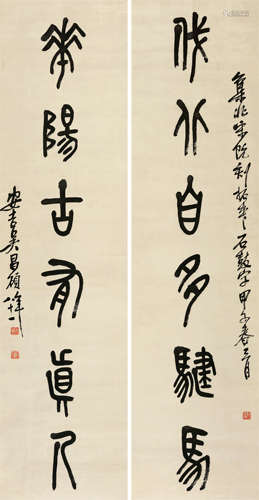 代北自多騝馬
集北宋
拓本石鼓字甲子春三月
華陽古有真人
安吉吳昌碩年八十一